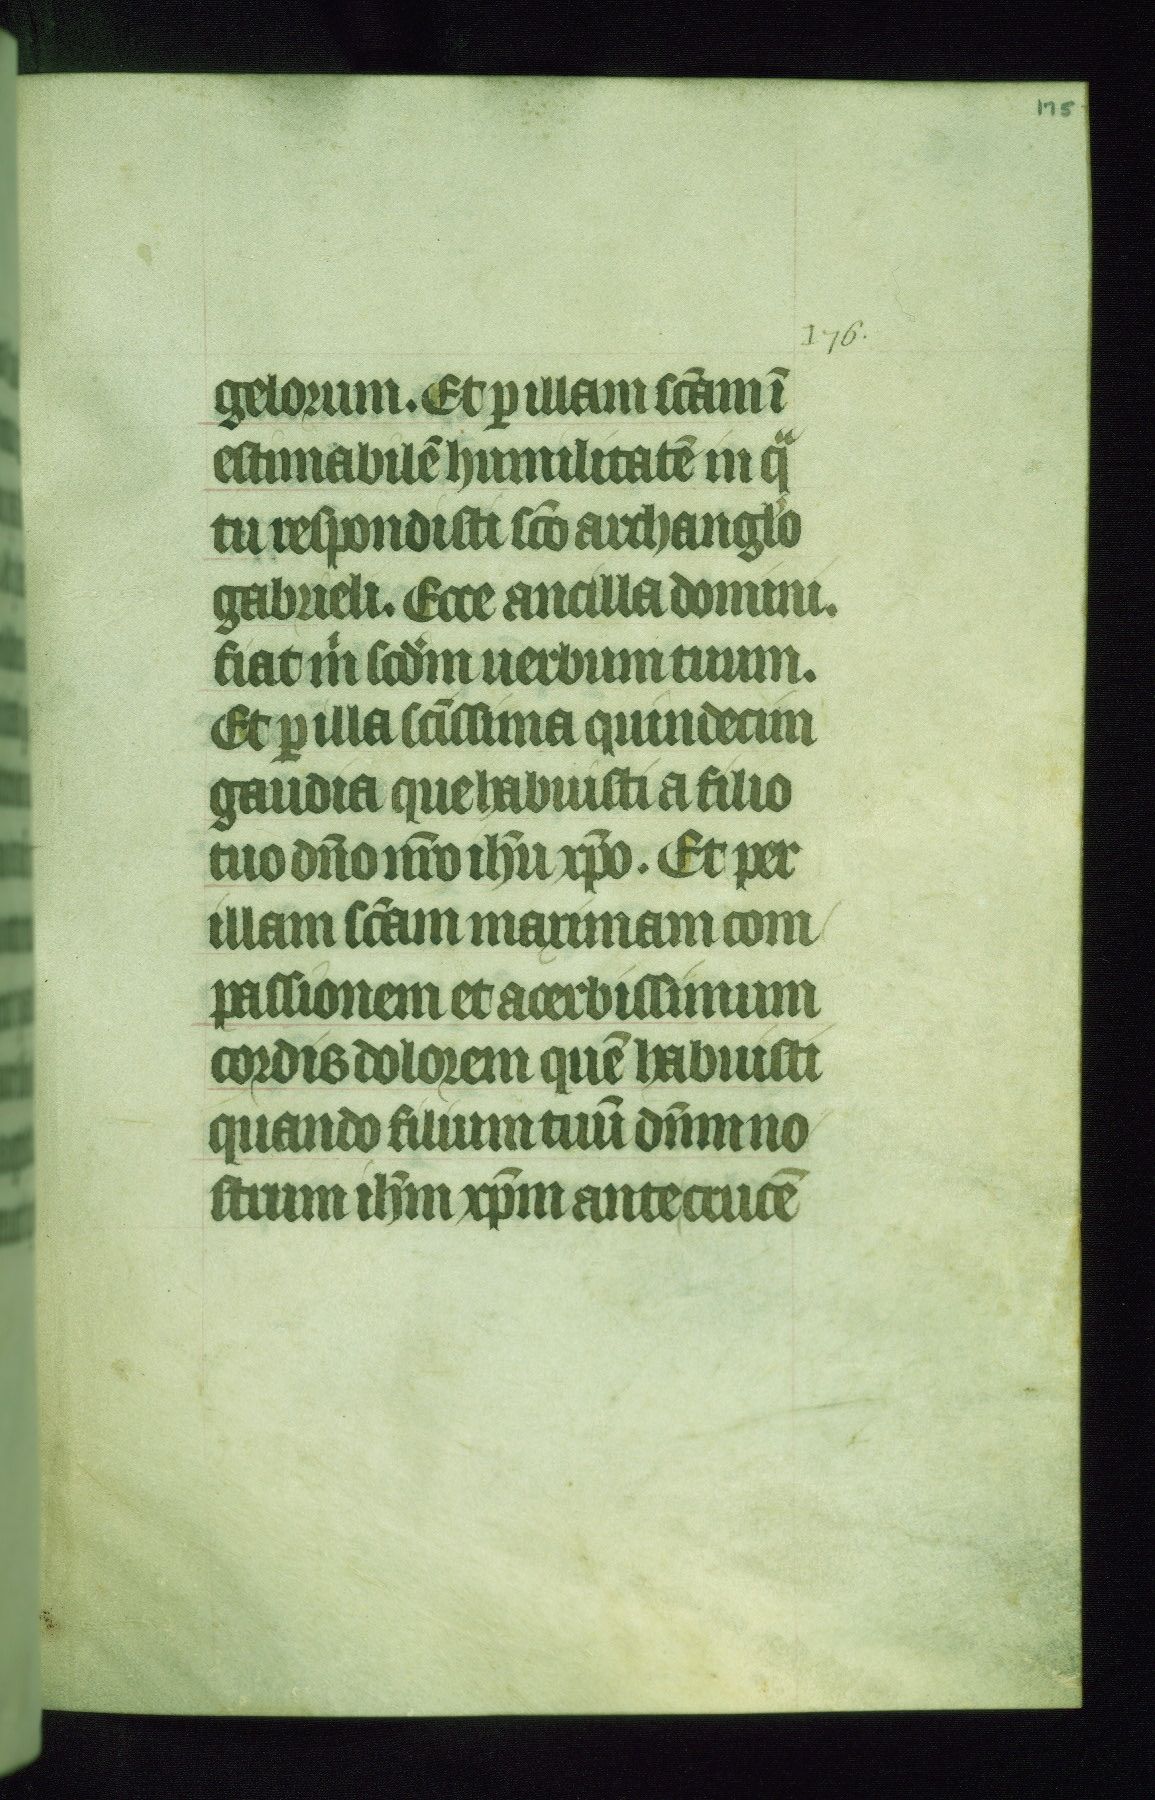 175
176.
gelorum. Et ꝑ illam scām ī
estimabilē humilitatē in qᵃ
tu respondisti scō archanglo
gabrieli. Ecce ancilla domini.
fiat mⁱ scd̄m uerbum tuum.
Et ꝑ illa scīssima quindecim
gaudia que habuisti a filio
tuo dn̄o nr̄o ihū xp̄o. Et per
illam scām maximam com
passionem et acerbissimum
cordis dolorem quē habuisti
quando filium tuū dn̄m no
strum ihm̄ xp̄m ante crucē